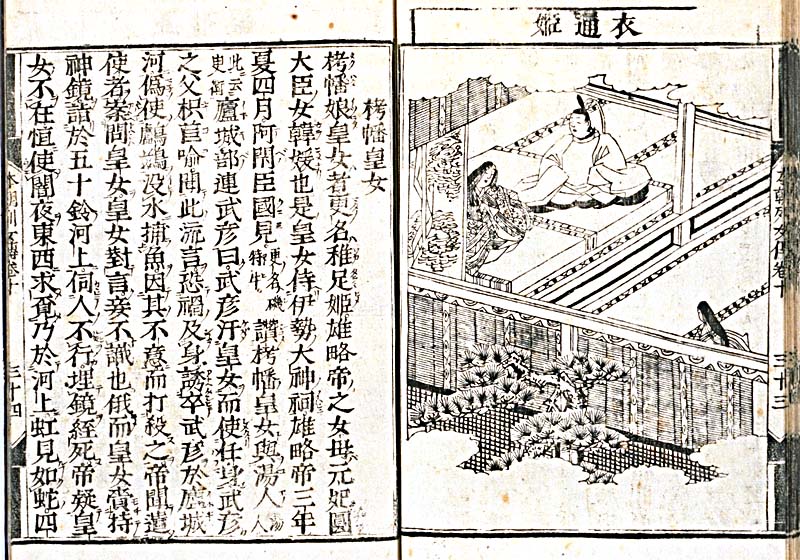 衣通姫
本朝列女傳卷十 三十三
栲幡皇女
栲幡娘皇女者更名稚足姬雄略帝之女母元妃圓
大臣女韓媛也是皇女侍伊勢大神祠雄略帝三年
夏四月阿閇臣國見更名磯特牛譖栲幡皇女與湯人湯人
此云廬城部連武彦曰武彦汗皇女而使任身武彦
之父枳莒喩聞此流言恐禍及身誘卒武彦於廬城
河僞使鸕鷀没水捕魚因其不意而打殺之帝聞遣
使者案問皇女皇女對言妾不識也俄而皇女齎持
神鏡詣於五十鈴河上伺人不行埋鏡經死帝疑皇
女不在恒使闇夜東西求覓乃於河上虹見如蛇四
本朝列女傳卷十 三十四